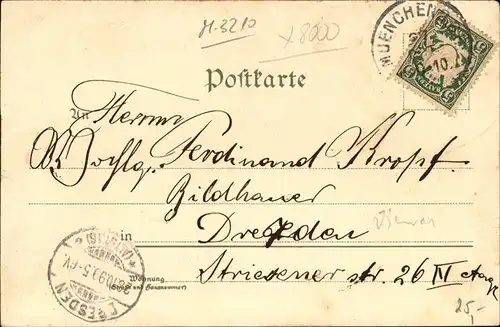 M.3210
x8000
MUENCHEN
Postkarte
An Herrn
Hochlg. Ferdinand Kropf.
Bildhauer
in Dresden
Wohnung
(Straße und Hausnummer)
Striesener str. 26 IV
DRESDEN
25,-